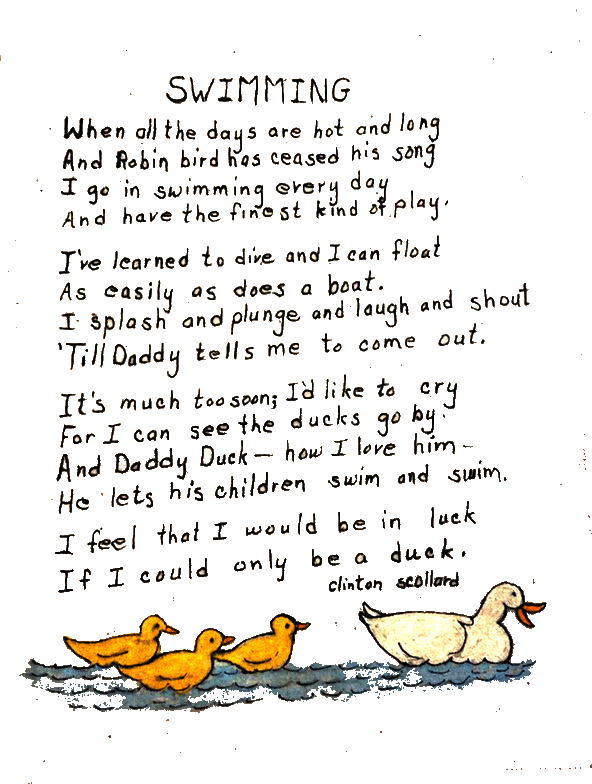 SWIMMING
When all the days are hot and long
And Robin bird has ceased his song
I go in swimming every day
And have the finest kind of play.
I've learned to dive and I can float
As easily as does a boat.
I splash and plunge and laugh and shout
'Till Daddy tells me to come out.
It's much too soon; I'd like to cry
For I can see the ducks go by.
And Daddy Duck — how I love him —
He lets his children swim and swim.
I feel that I would be in luck
If I could only be a duck.
clinton scollard